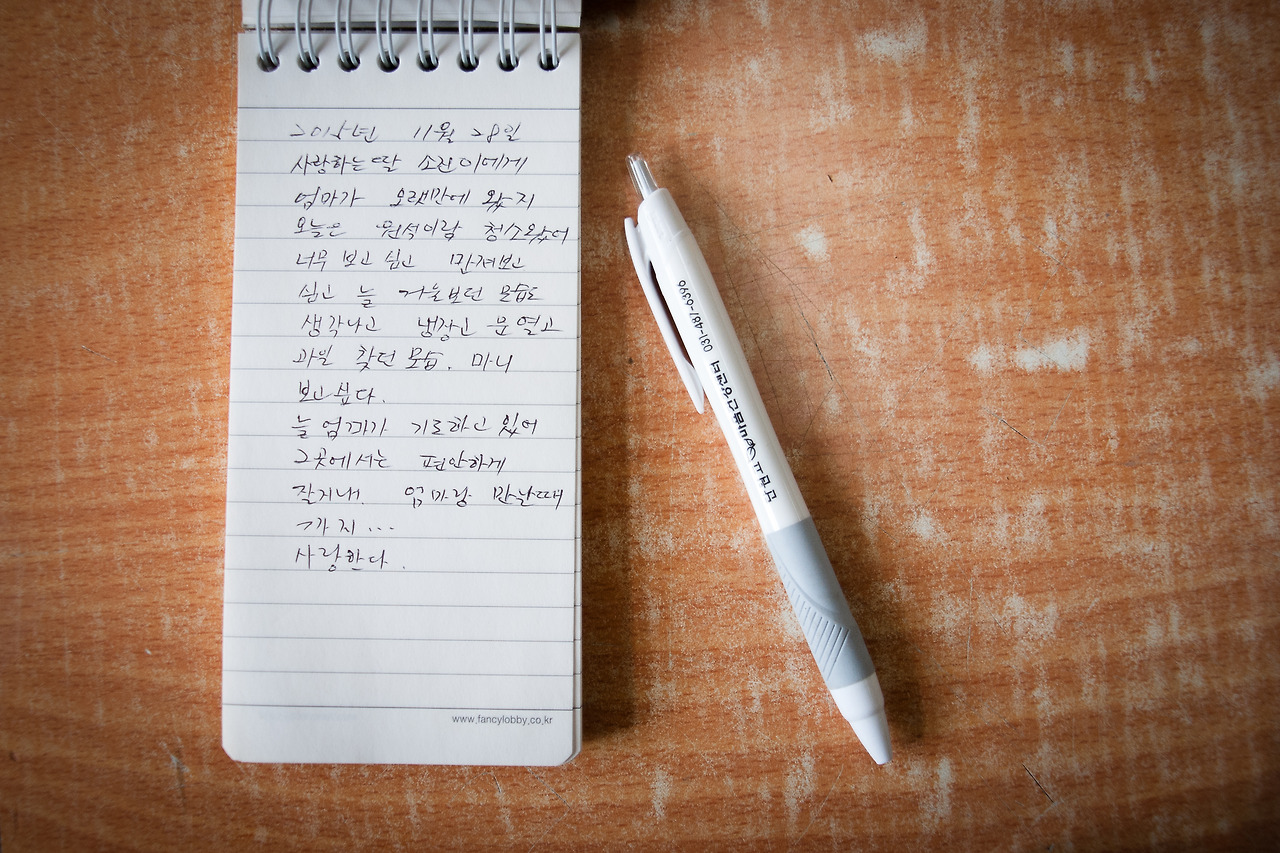 2015년 11월 28일
사랑하는 딸 소진이에게
엄마가 오랜만에 왔지
오늘은 원석이랑 청소왔어
너무 보고 싶고 만져보고
싶고 늘 거울보던 모습도
생각나고 냉장고 문 열고
과일 찾던 모습. 마니
보고싶다.
늘 엄마가 기도하고 있어
그곳에서는 편안하게
잘지내. 엄마랑 만날때
까지...
사랑한다.
www.fancylobby.co.kr
031-487-6396